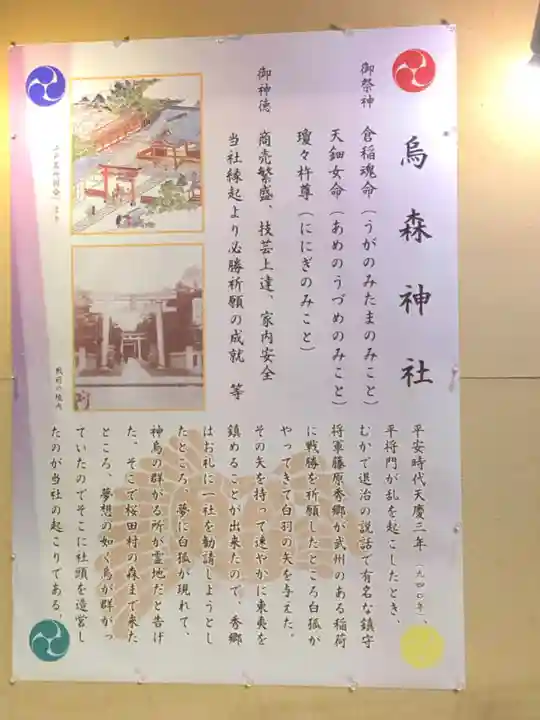 烏森神社
御祭神　倉稲魂命（うがのみたまのみこと）
天鈿女命（あめのうづめのみこと）
瓊々杵尊（ににぎのみこと）
御神徳　商売繁盛、技芸上達、家内安全
当社縁起より必勝祈願の成就　等
平安時代天慶三年（九四〇年）、
平将門が乱を起こしたとき、
むかで退治の説話で有名な鎮守
将軍藤原秀郷が武州のある稲荷
に戦勝を祈願したところ白狐が
やってきて白羽の矢を与えた。
その矢を持って速やかに東夷を
鎮めることが出来たので、秀郷
はお礼に一社を勧請しようとし
たところ、夢に白狐が現れて、
神烏の群がる所が霊地だと告げ
た。そこで桜田村の森まで来た
ところ、夢想の如く烏が群がっ
ていたのでそこに社頭を造営し
たのが当社の起こりである。
江戸名所図会より
戦前の境内